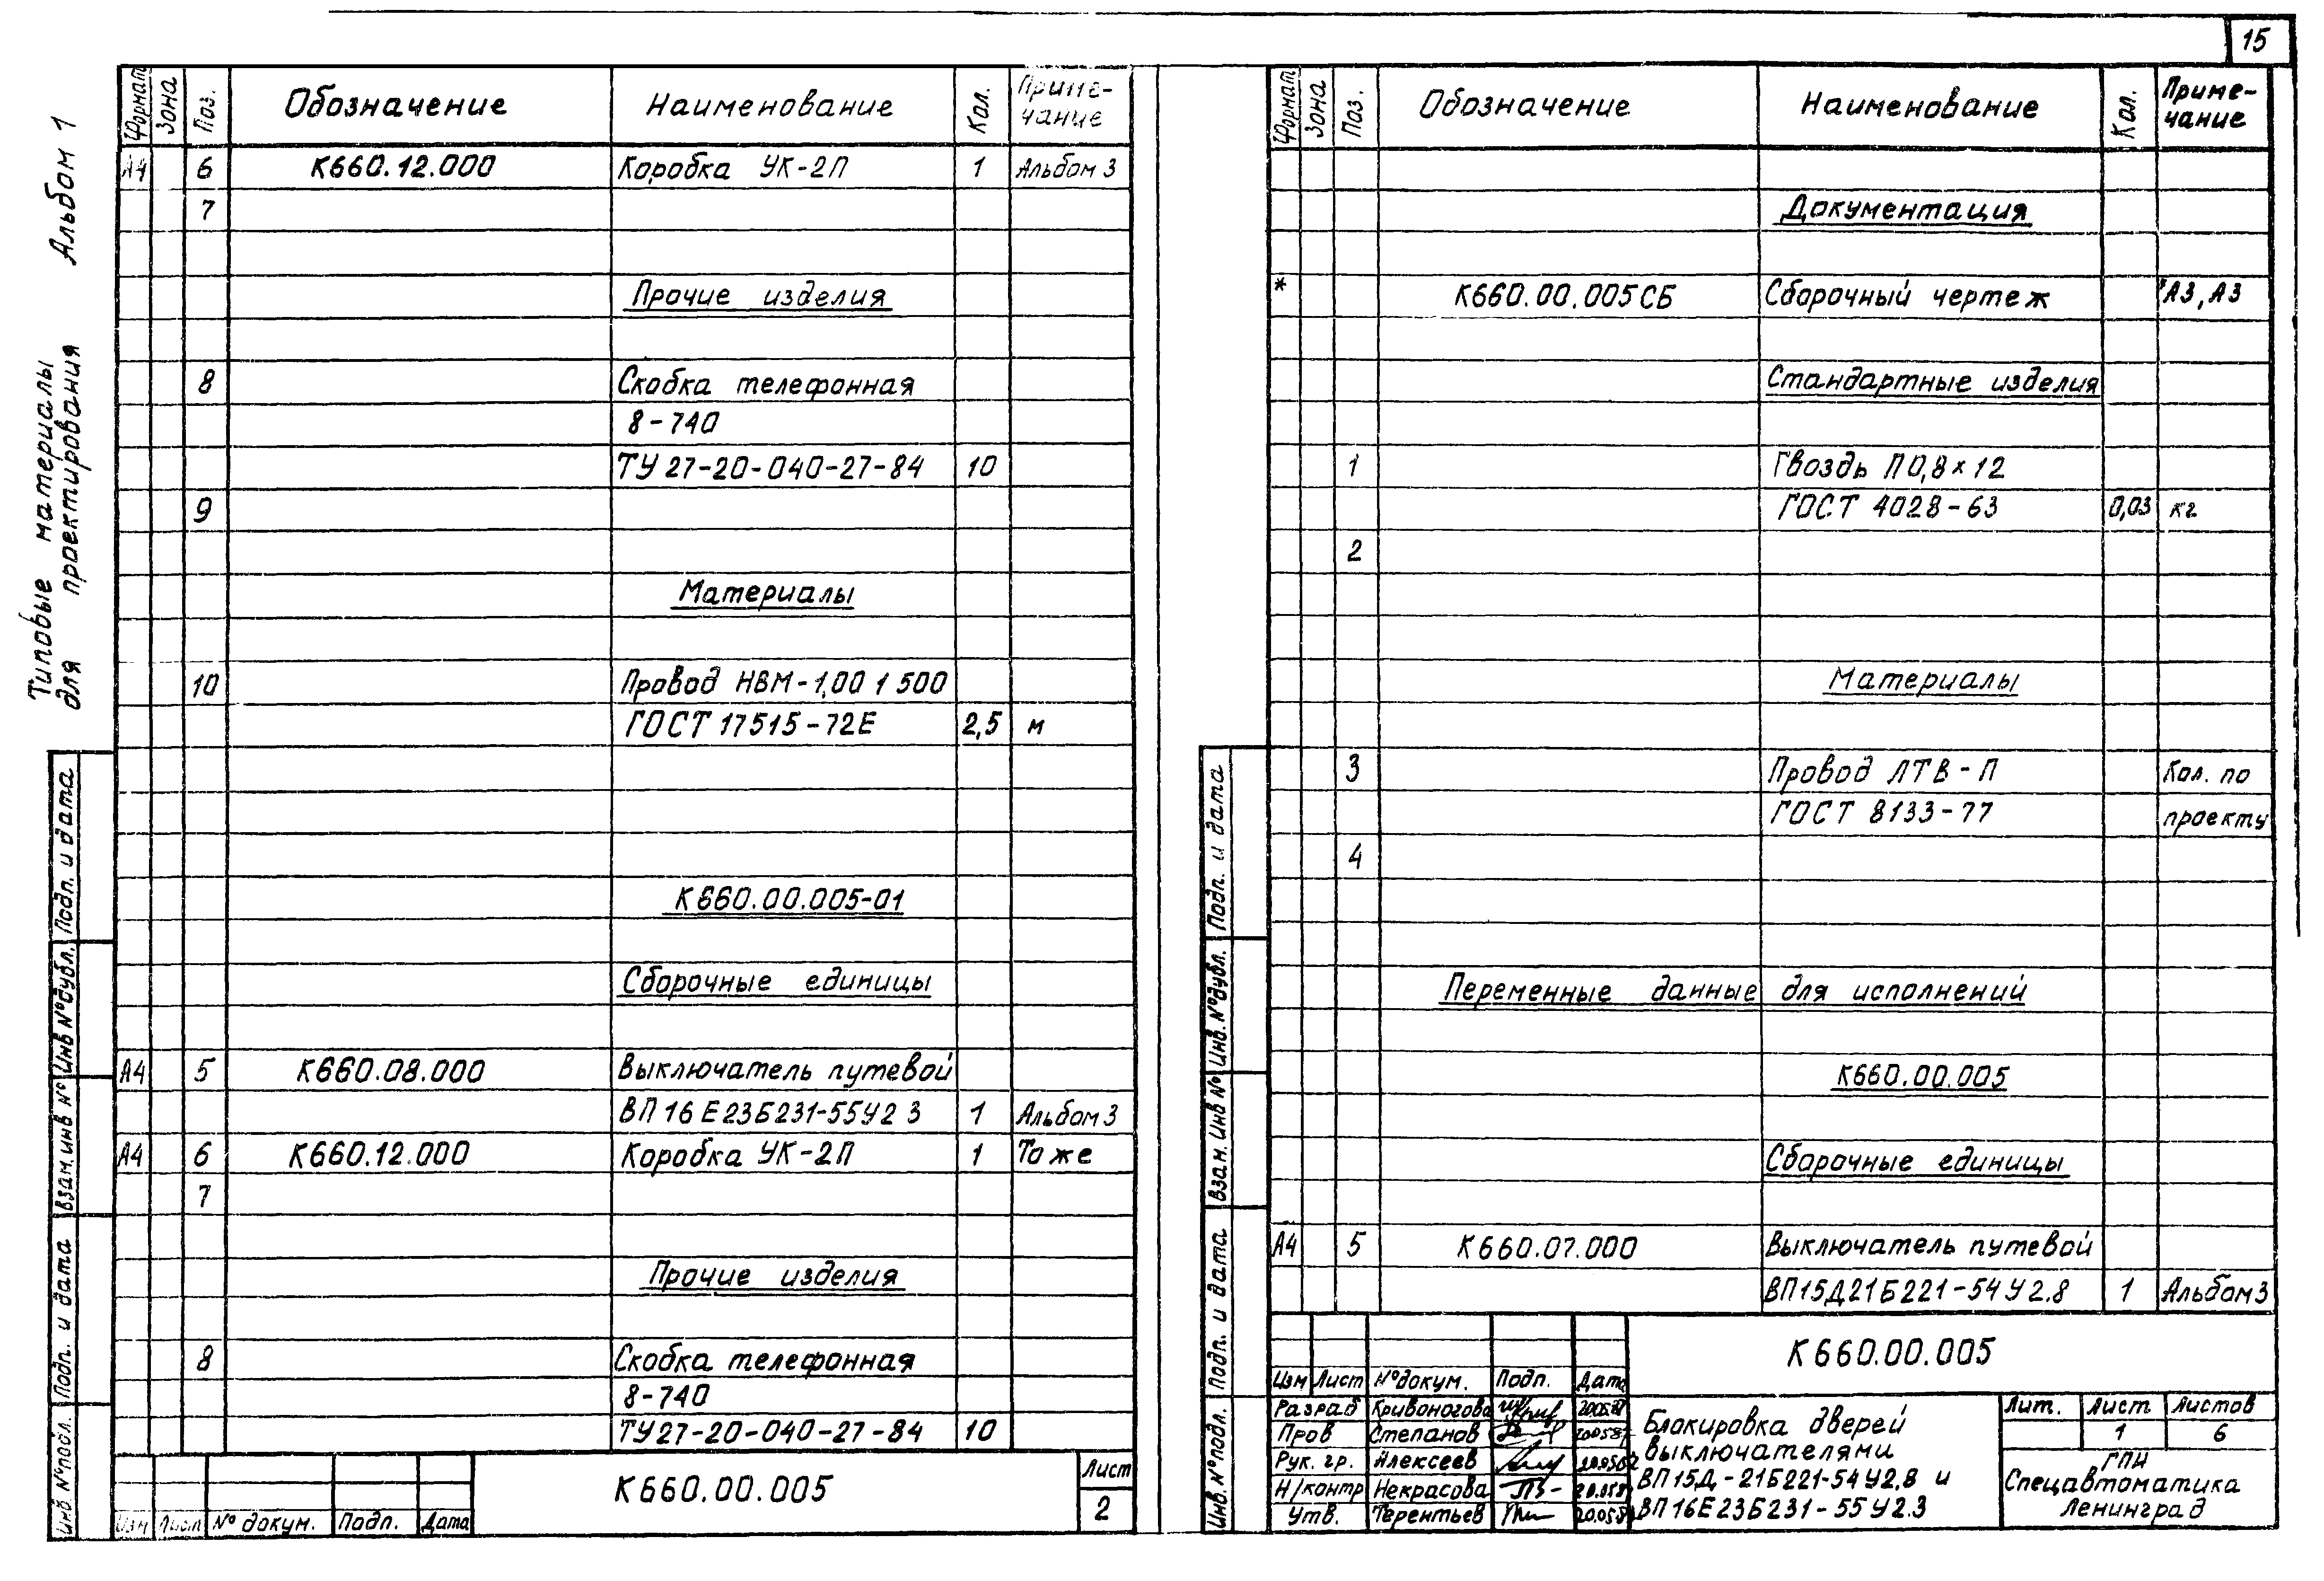 15
Альбом 1
Типовые материалы
для проектирования
Формат Зона Поз. Обозначение Наименование Кол. Приме-
чание
А4 6 К660.12.000 Коробка УК-2П 1 Альбом 3
7
Прочие изделия
8 Скобка телефонная
8-740
ТУ 27-20-040-27-84 10
9
Материалы
10 Провод НВМ-1,00 1 500
ГОСТ 17515-72Е 2,5 м
К660.00.005-01
Сборочные единицы
А4 5 К660.08.000 Выключатель путевой
ВП16Е23Б231-55У2 3 1 Альбом 3
А4 6 К660.12.000 Коробка УК-2П 1 То же
7
Прочие изделия
8 Скобка телефонная
8-740
ТУ27-20-040-27-84 10
Подп. и дата
Инв №дубл.
Взам.инв №
Подп. и дата
Инв №подл.
Изм Лист № докум. Подп. Дата
К660.00.005
Лист
2
Формат Зона Поз. Обозначение Наименование Кол. Приме-
чание
Документация
* К660.00.005СБ Сборочный чертеж *А3, А3
Стандартные изделия
1 Гвоздь П 0,8×12
ГОСТ 4028-63 0,03 кг
2
Материалы
3 Провод ЛТВ-П Кол. по
ГОСТ 8133-77 проекту
4
Переменные данные для исполнений
К660.00.005
Сборочные единицы
А4 5 К660.07.000 Выключатель путевой
ВП15Д21Б221-54У2.8 1 Альбом 3
Подп. и дата
Инв.№дубл.
Взам.Инв №
Подп. и дата
Инв.№подл.
К660.00.005
Изм Лист №докум. Подп. Дата
Разраб Кривоногова
Пров Степанов
Рук. гр. Алексеев
Н/контр Некрасова
Утв. Терентьев
Блокировка дверей
выключателями
ВП15Д-21Б221-54У2.8 и
ВП16Е23Б231-55У2.3
Лит. Лист Листов
1 6
ГПИ
Спецавтоматика
Ленинград